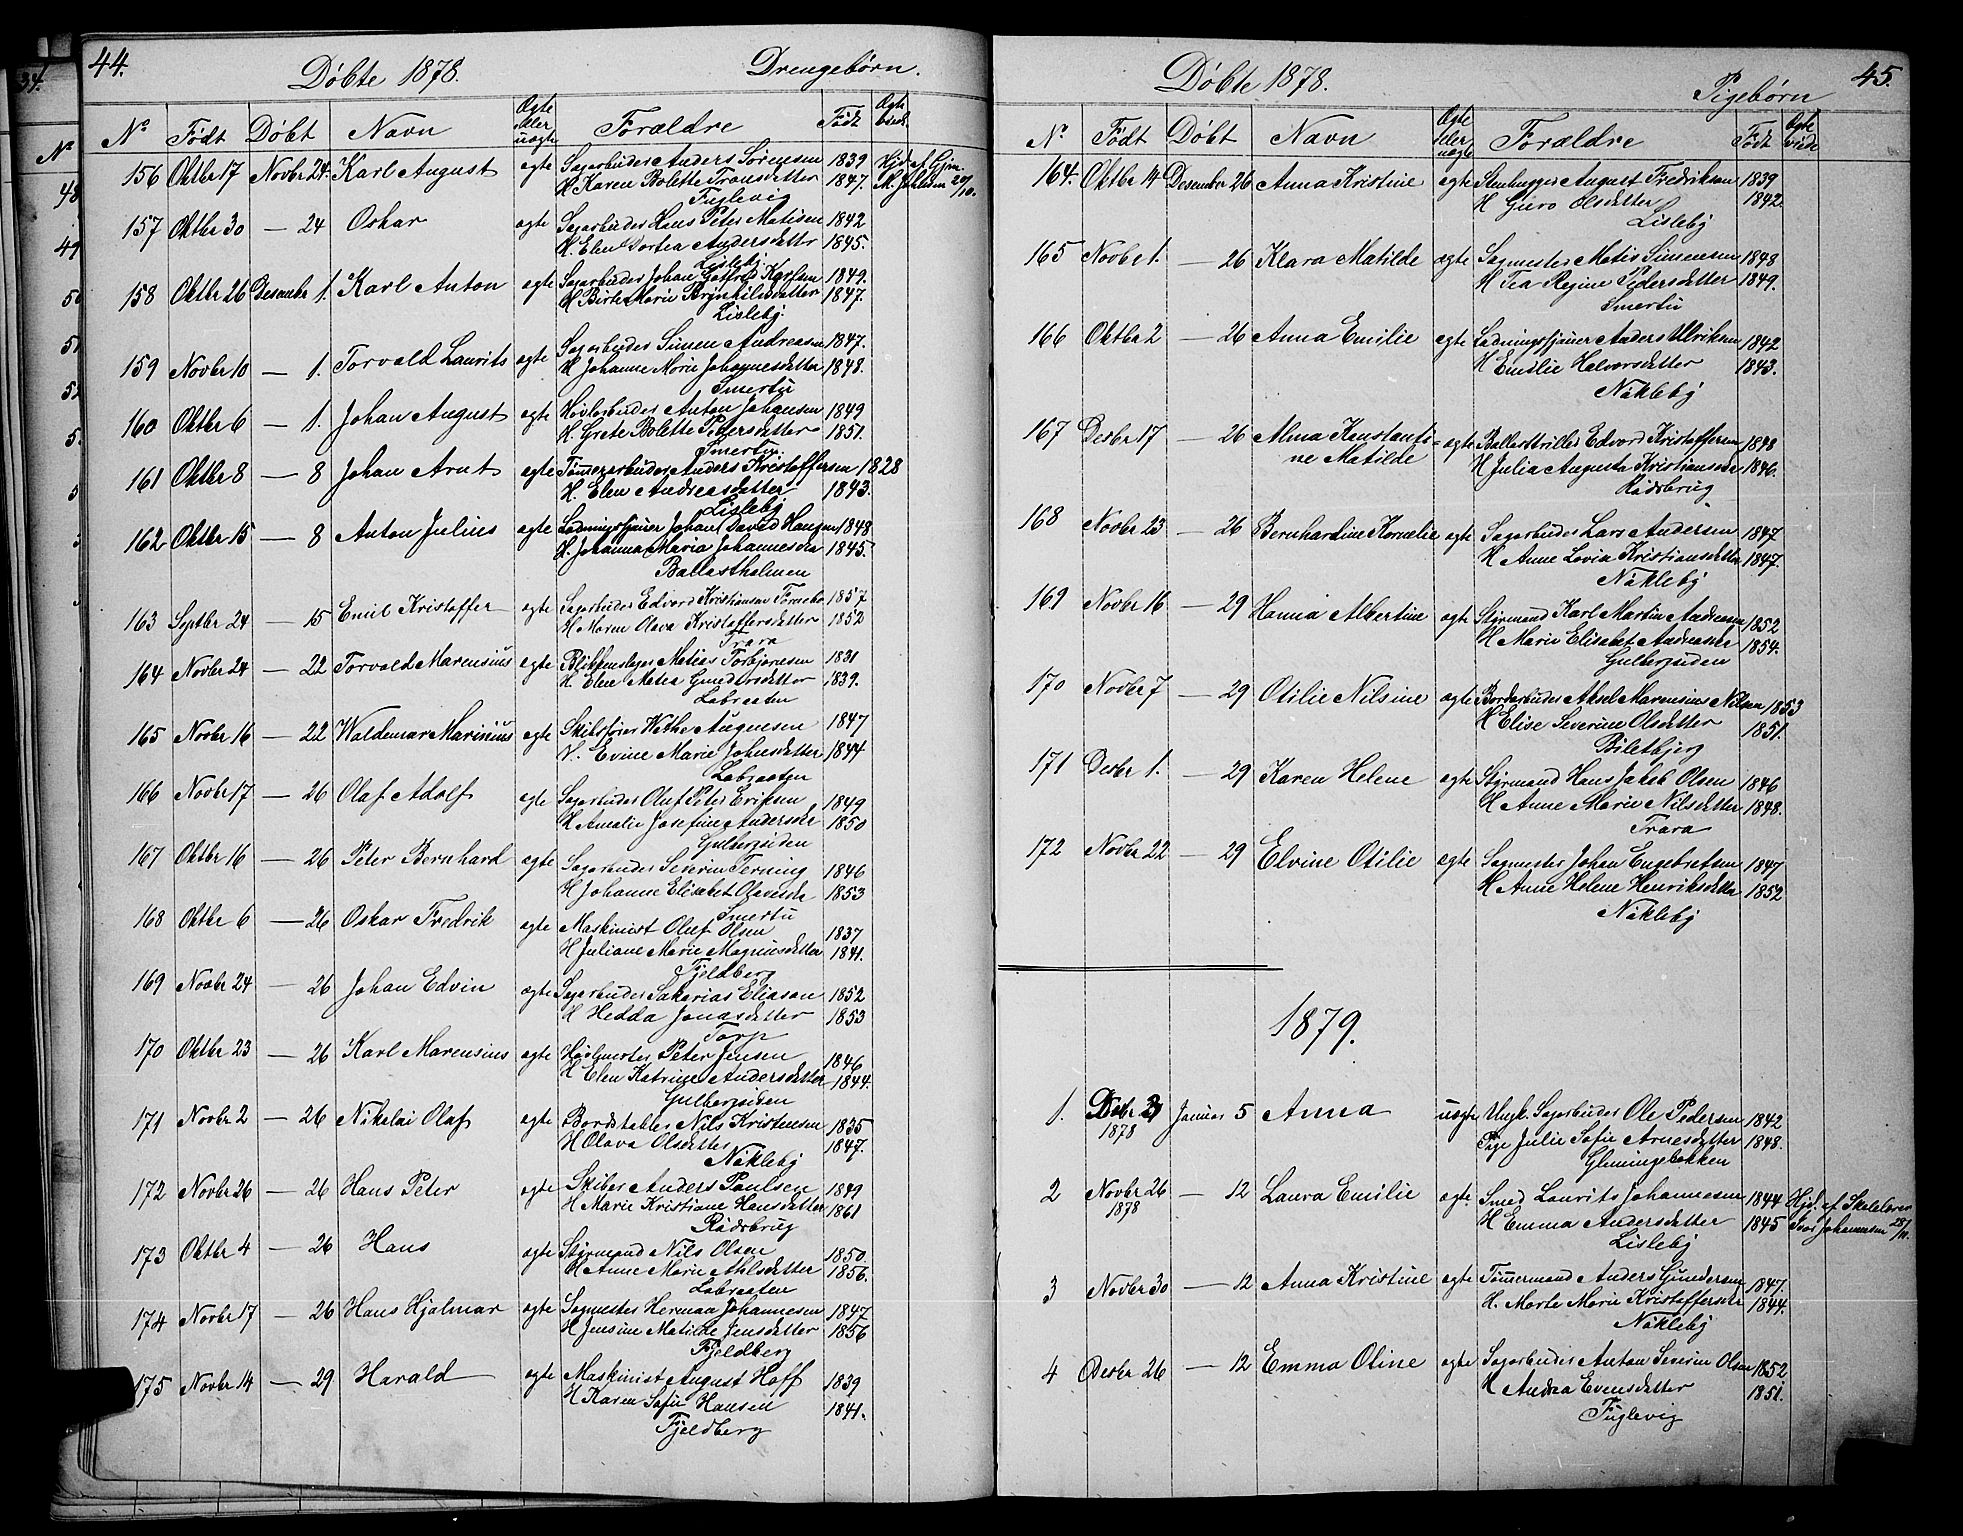 44.
Döbte 1878.
Drengebørn.
No
Födt
Döbt
Navn
Ægte eller uægte
Forældre
Födt
156 Oktbr 17 Novbr 24. Karl August ægte Sagarbeider Anders Sørensen 1839
H Karen Bolette Fransdatter 1847.
Fuglevig
157 Oktbr 30 — 24 Oskar ægte Sagarbeider Hans Peter Matisen 1842
H. Elen Dortea Andersdatter 1845.
Lisleby
158 Oktbr 26 Desembr 1. Karl Anton ægte Sagarbeider Johan Karlsen 1849.
H Birte Marie Brynhildsdatter 1847.
Lisleby
159 Novbr 10 — 1. Torvald Laurits ægte Sagarbeider Simen Andreasen 1847.
H Johanne Marie Johannesdatter 1848.
Smertu
160 Oktbr 6 — 1. Johan August ægte Høvlarbeider Anton Johansen 1849
H. Grete Bolette Pedersdatter 1851.
Smertu
161 Oktbr 8 — 8 Johan Arnt ægte Tömerarbeider Anders Kristoffersen 1828
H. Elen Andreasdatter 1843.
Lisleby
162 Oktbr 15 — 8 Anton Julius ægte Ladningsfører Johan David Haugen 1848
H. Johanna Maria Johannesdtr 1845.
Ballastholmen
163 Septbr 24 — 15 Emil Kristoffer ægte Sagarbeider Edvard Kristiansen Fornebo 1857
H Maren Olava Kristoffersdatter 1852
Trara
164 Novbr 24 — 22 Torvald Marensius ægte Blikkenslager Matias Torbjørnsen 1831
H. Elen Matea Gundersdatter 1839.
Labraaten
165 Novbr 16 — 22 Waldemar Marinius ægte Skibsfører Wethe Augnesen 1847
H. Evine Marie Johnsdatter 1844
Labraaten
166 Novbr 17 — 26 Olaf Adolf ægte Sagarbeider Oluf Peter Eriksen 1849
H Amalie Josefine Andersdtr 1850
Gulbergsiden
167 Oktbr 16 — 26 Peter Bernhard ægte Sagarbeider Severin Terning 1846
H Johanne Elisabet Olavesdtr 1853
Smertu
168 Oktbr 6 — 26 Oskar Fredrik ægte Maskinist Oluf Olsen 1837
H Juliane Marie Magnusdatter 1841.
Fjeldberg
169 Novbr 24 — 26 Johan Edvin ægte Sagarbeider Sakarias Eliasen 1852
H Hedda Jonasdatter 1853
Torp
170 Oktbr 23 — 26 Karl Marensius ægte Høvlmester Peter Jensen 1846
H Elen Katrine Andersdatter 1844.
Gulbergsiden
171 Novbr 2 — 26 Nikolai Olaf ægte Bordstabler Nils Kristensen 1835
H Olava Olsdatter 1847.
Nökleby
172 Novbr 26 — 26 Hans Peter ægte Skiber Anders Paulsen 1849
H Marie Kristiane Hansdatter 1861
Rödsbrug
173 Oktbr 4 — 26 Hans ægte Styrmand Nils Olsen 1850.
H Anne Marie Ahlsdatter 1856.
Labraaten
174 Novbr 17 — 26 Hans Hjalmar ægte Sagmester Herman Johannesen 1847
H Jensine Matilde Jensdatter 1856
Fjeldberg
175 Novbr 14 — 29 Harald ægte Maskinist August Hoff 1839
H Karen Sofie Hansen 1841.
Fjeldberg
45.
Döbte 1878.
Pigebørn
No
Födt
Döbt
Navn
Ægte eller uægte
Forældre
Födt
164. Oktbr 14 Desember 26 Anna Kristine ægte Stenhugger August Fredriksen 1839
H Guro Olsdatter 1842.
Lisleby
165 Novbr 1. — 26 Klara Matilde ægte Sagmester Matis Simensen 1848
H Tea Regine Pedersdatter 1849.
Smertu
166 Oktbr 2 — 26 Anna Emilie ægte Ladningsfører Anders Ulriksen 1842
H Emilie Halvorsdatter 1843.
Nökleby
167 Desbr 17 — 26 Alma Konstanti- ægte Ballasttriller Edvard Kristoffersen 1848
ne Matilde H Julia Augusta Kristiansdtr 1846.
Rödsbrug
168 Novbr 23 — 26 Bernhardine Kornelie ægte Sagarbeider Lars Andersen 1847
H Anne Lovia Kristiansdatter 1847.
Nökleby
169 Novbr 16 — 29 Hanna Albertine ægte Styrmand Karl Martin Andreasen 1852
H Marie Elisabet Andreasdtr 1854.
Gulbergsiden
170 Novbr 7 — 29 Otilie Nilsine ægte Bordarbeider Aksel Marensius Nilsen 1853
H Elise Severine Olsdatter 1851.
Biletbjerg
171 Desbr 1. — 29 Karen Helene ægte Styrmand Hans Jakob Olsen 1846
H Anne Marie Nilsdatter 1848.
Trara
172 Novbr 22 — 29 Elvine Otilie ægte Sagmester Johan Engebretsen 1847
H Anne Helene Henriksdatter 1852
Nökleby
1879.
1. Januar 5 Anna uægte Ungk. Sagarbeider Ole Pedersen 1842
1878 Pige Julie Sofie Arnesdatter 1848.
Glemingebakken
2 Novbr 26 — 12 Laura Emilie ægte Smed Laurits Johannesen 1844 Hjd. af Skolelærer
1878 H Emma Andersdatter 1845 Johannesen 28/11.
Lisleby
3 Novbr 30 — 12 Anna Kristine ægte Tömmermand Anders Gundersen 1847
H. Marte Marie Kristoffersdtr 1844.
Nökleby
4 Desbr 26 — 12 Emma Otine ægte Sagarbeider Anton Severin Olsen 1852
H Andrea Evensdatter 1851.
Fuglevig